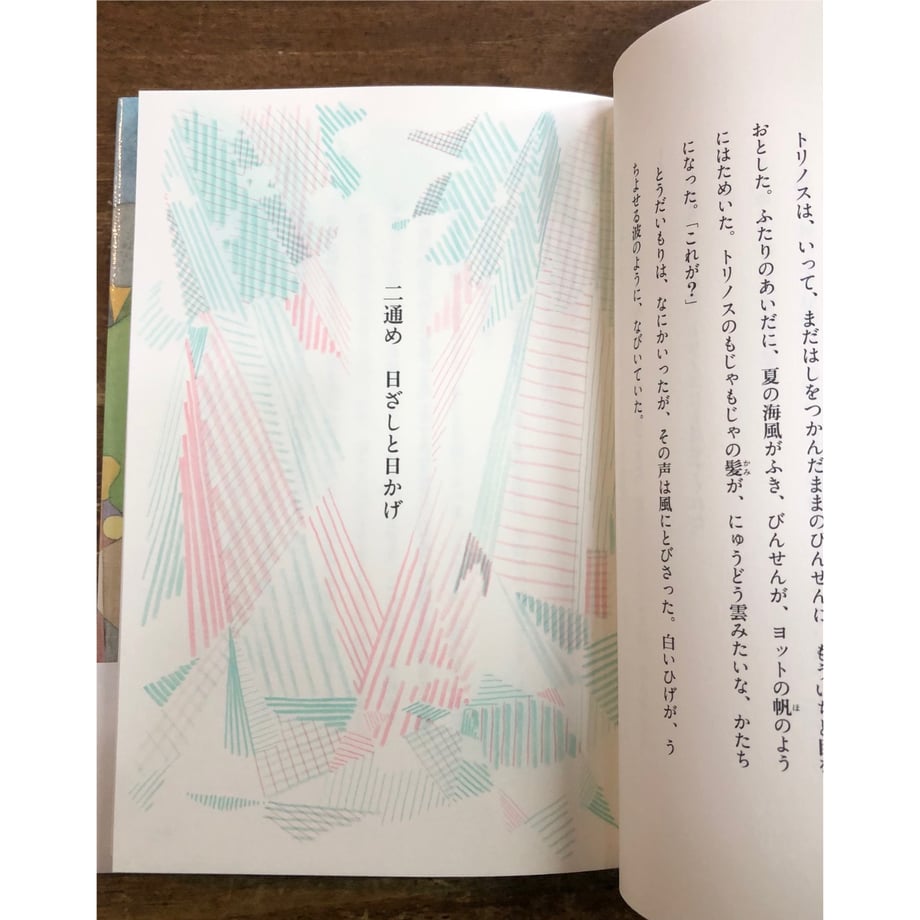 トリノスは、いって、まだはしをつかんだままのびんせんに、もういちど目を
おとした。ふたりのあいだに、夏の海風がふき、びんせんが、ヨットの帆のよう
にはためいた。トリノスのもじゃもじゃの髪が、にゅうどう雲みたいな、かたち
になった。「これが?」
とうだいもりは、なにかいったが、その声は風にとびさった。白いひげが、う
ちよせる波のように、なびいていた。
二通め 日ざしと日かげ